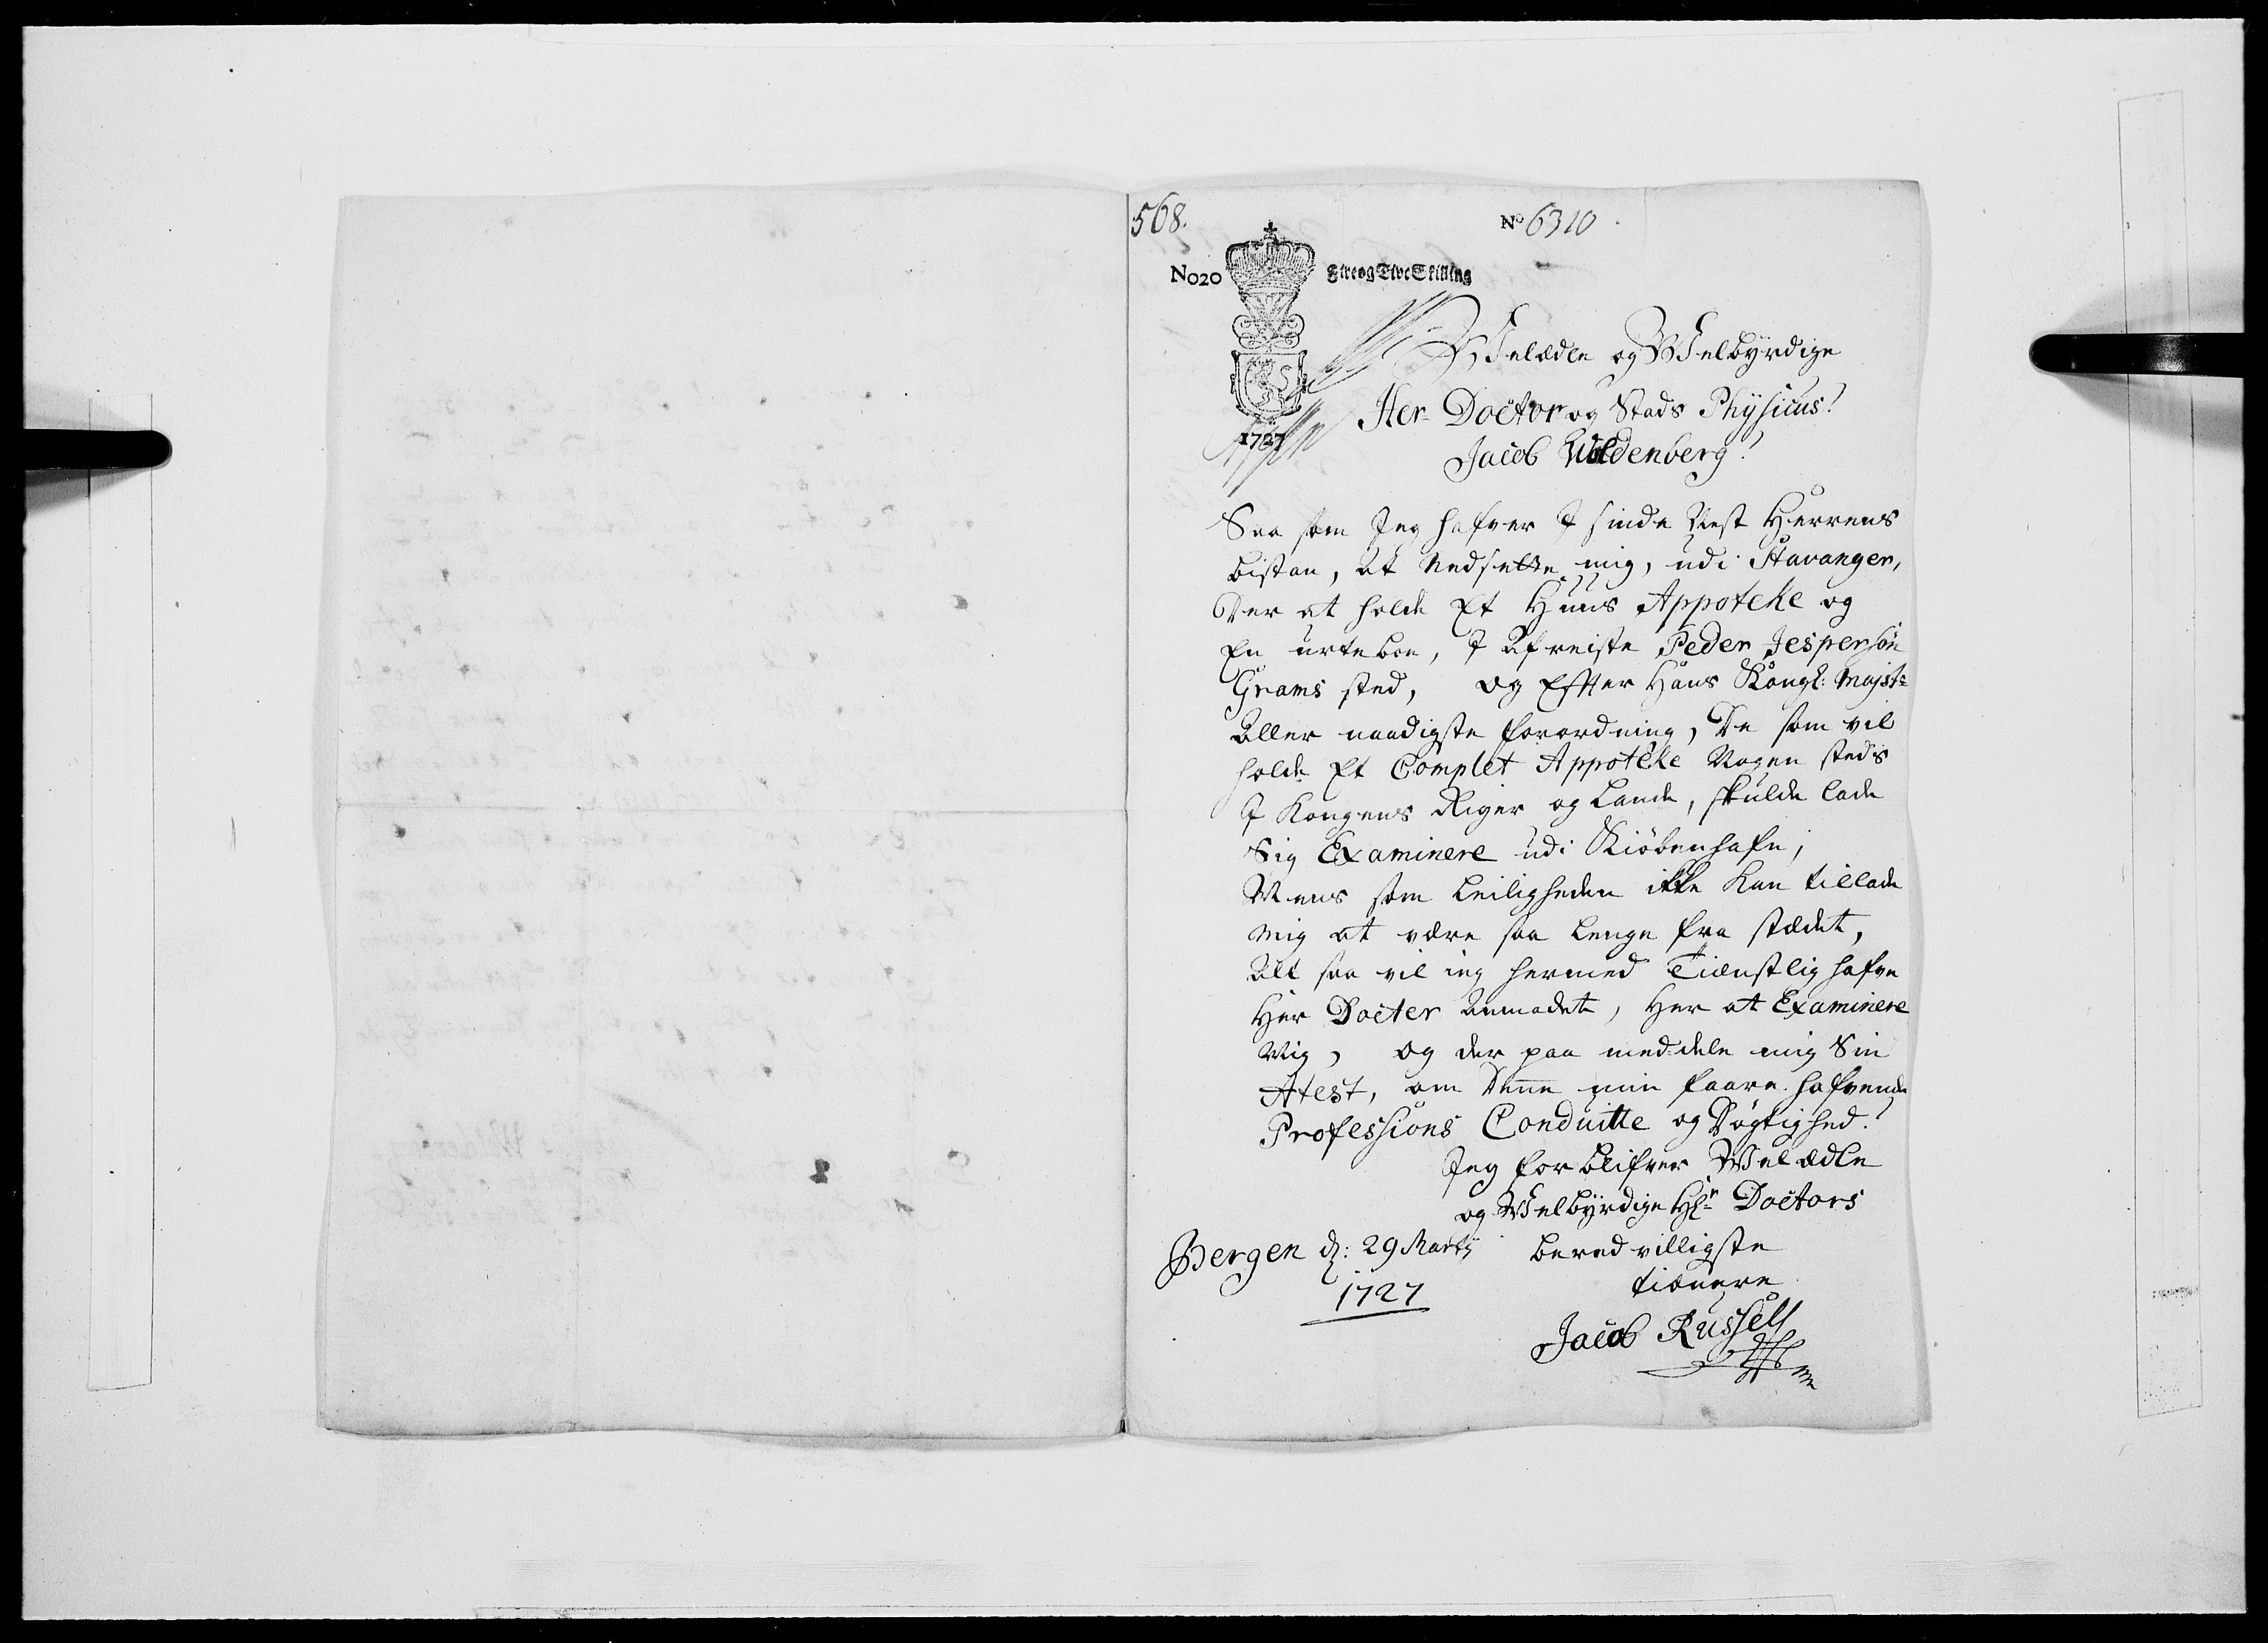 568.
No 6310
No20
Fire og Tive Skilling
1727
WElædle og WElbyrdige
Her Doctor og Stads Phÿsicus!
Jacob Woldenberg!
Saa som Jeg hafver I sinde Nest Herrens
bistan, At Nedsette mig, udi Stavanger,
Der at holde Et Huus Appoteke og
En urteboe, I Afreiste Peder Jespersøn
Grams sted, og Effter Hans Kongl: Majsts
Aller naadigste forordning, De som vil
holde Et Complet Appoteke Nogen steds
I Kongens Riger og Lande, skulde lade
Sig Examinere udi Kiöbenhafn,
Mens som Leiligheden ikke kan tillade
mig at være saa lenge fra stædet,
Alt saa vil ieg hermed Tienstlig hafve
Her Docter Anmodet, Her at Examinere
Mig, og der paa meddele mig Sin
Atest, om Denne min faare hafvende
Professions Conduitte og Dögtighed!
Jeg forblifver WElædle
og WElbyrdige Hr Doctors
Bergen d: 29 Martij
beredvilligste
1727
tienere
Jacob Russell